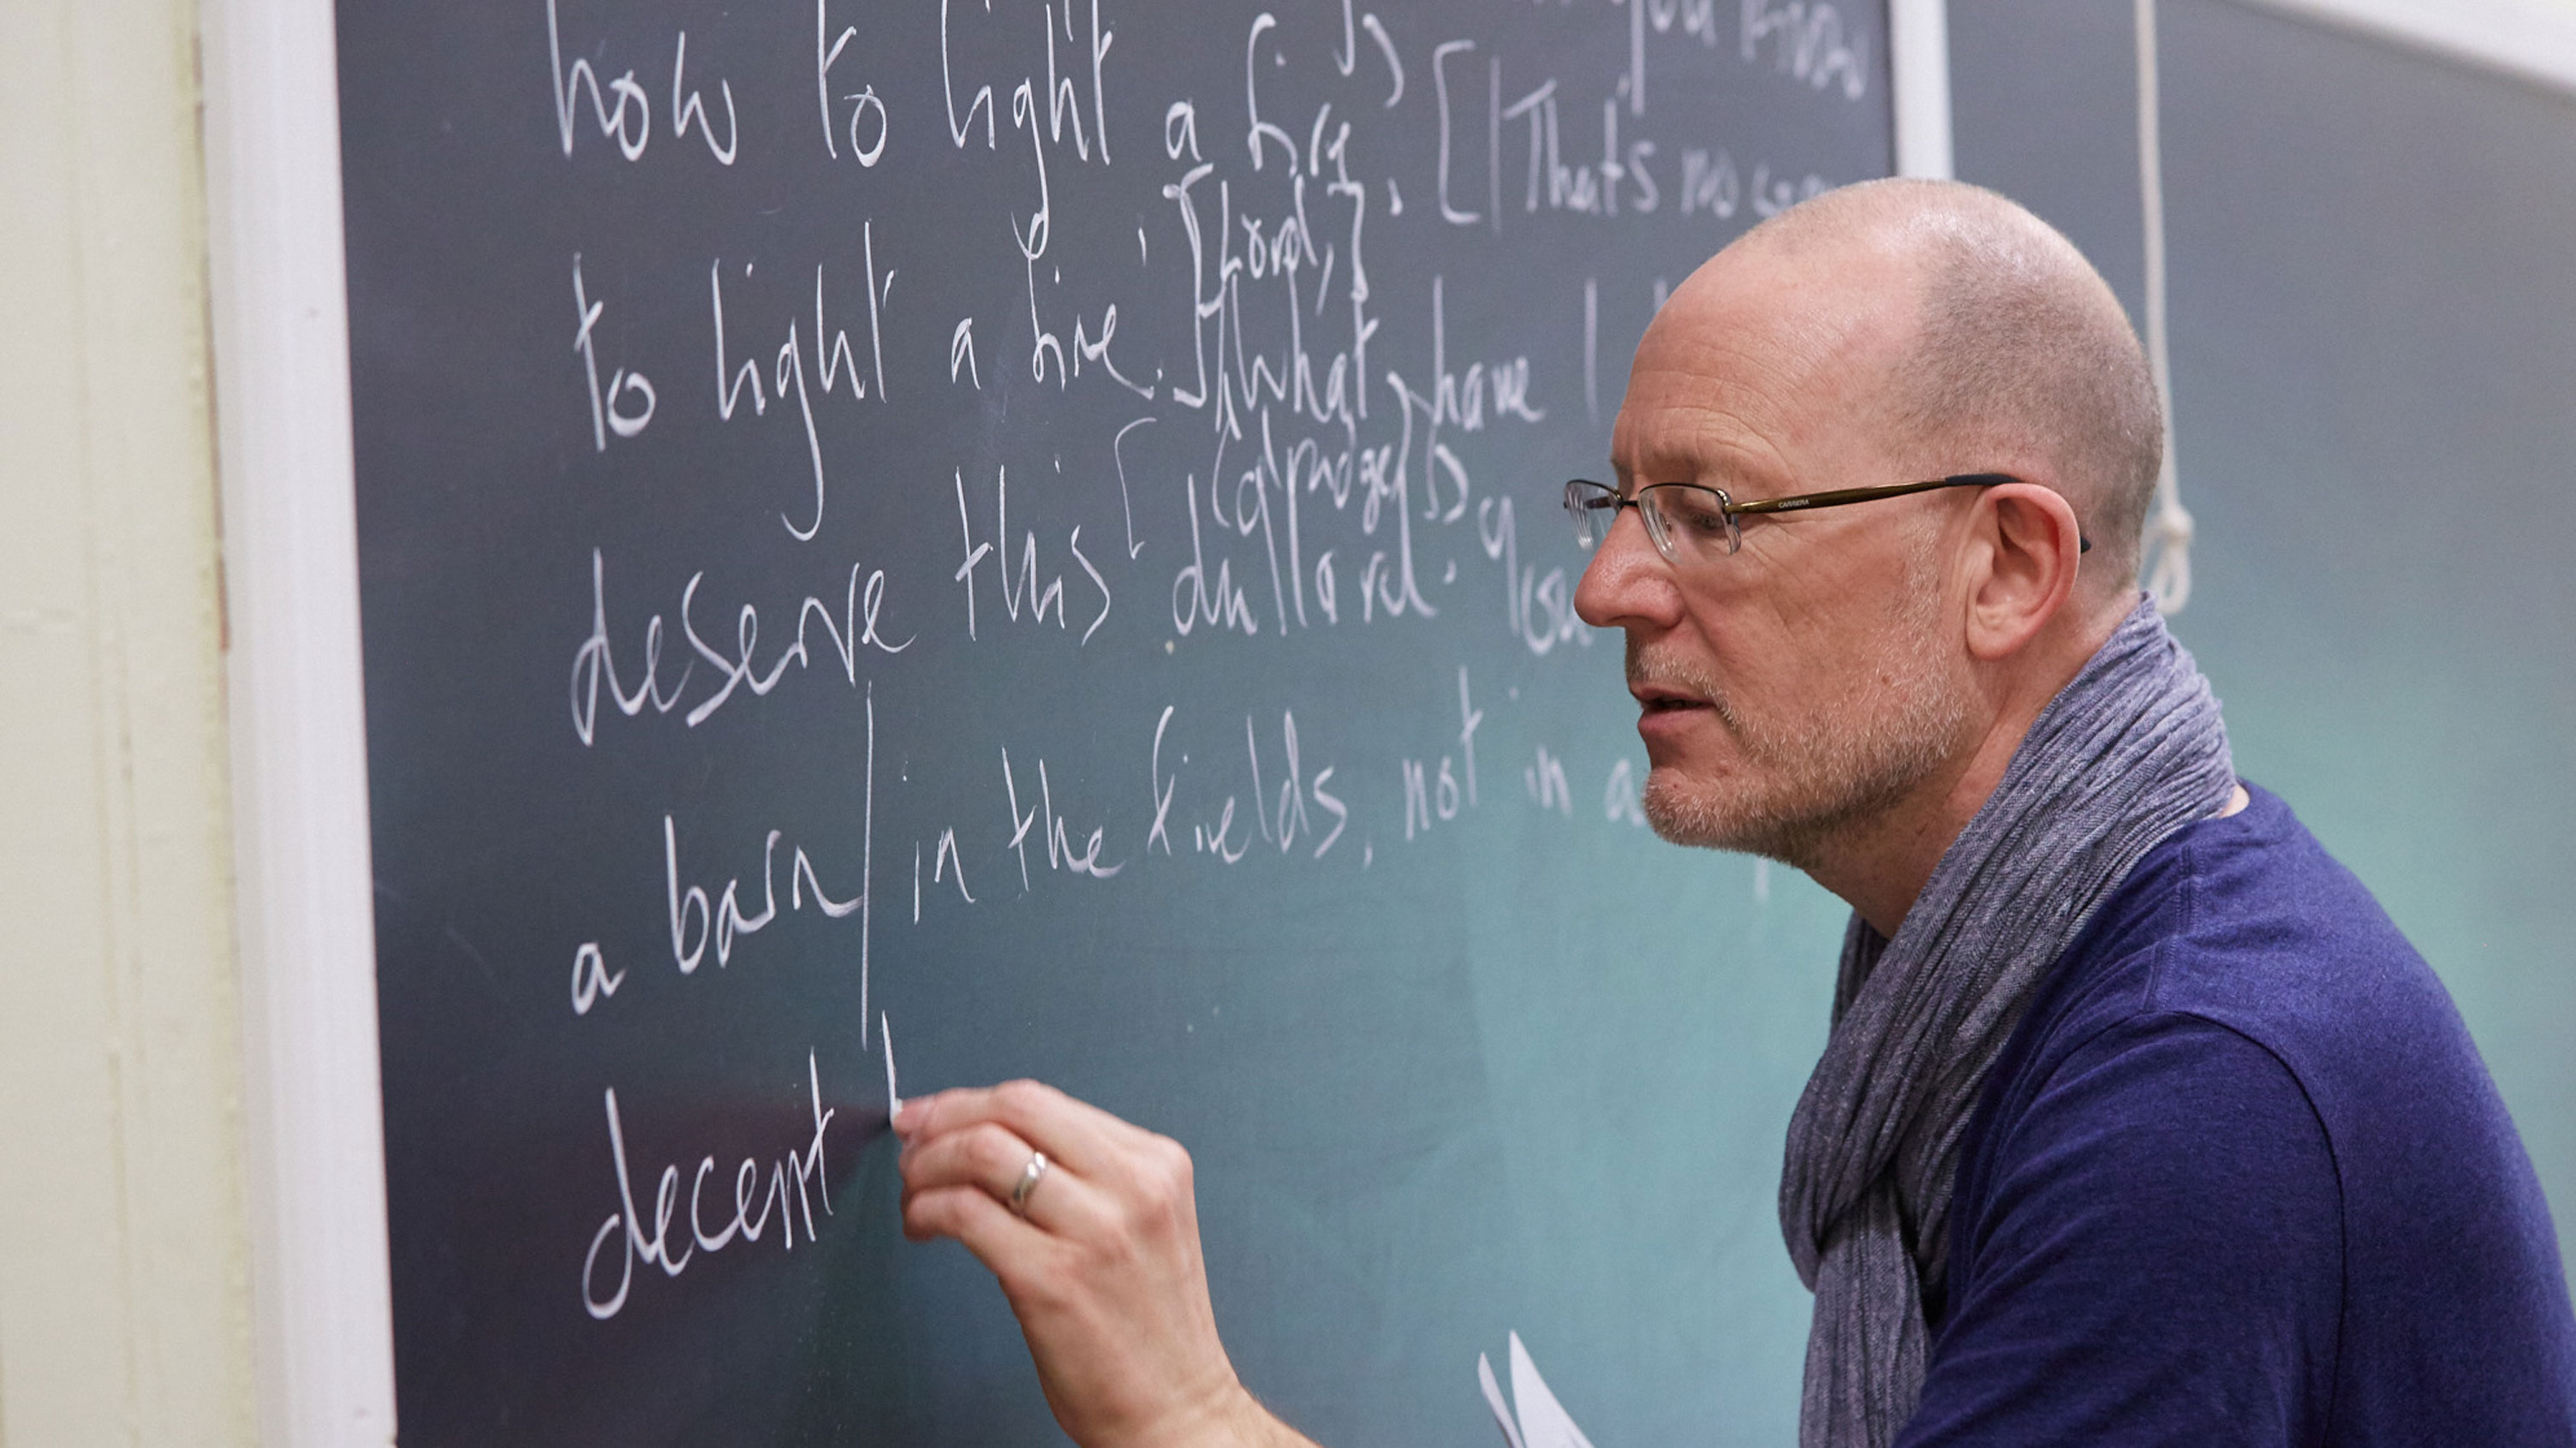 you know
how to light a fire. [ | That's no way
to light a fire. [Lord,] what have I
deserve this [ (drudge) ] dullard.
a barn / in the fields, not in a
decent
CARRERA